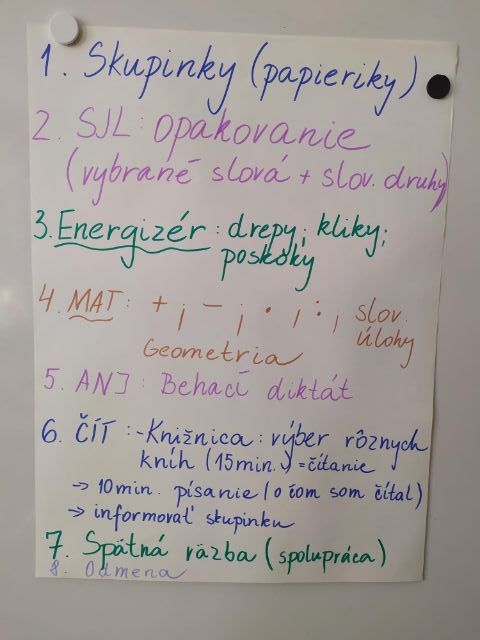 1. Skupinky (papieriky)
2. SJL: opakovanie
(vybrané slová + slov. druhy)
3. Energizér: drepy; kliky;
poskoky
4. MAT: + ; - ; • ; : ; slov.
úlohy
Geometria
5. ANJ: Behací diktát
6. ČÍT: - Knižnica: výber rôznych
kníh (15min.) = čítanie
→ 10min. písanie (o čom som čítal)
→ informovať skupinku
7. Spätná räzba (spolupráca)
8. Odmena